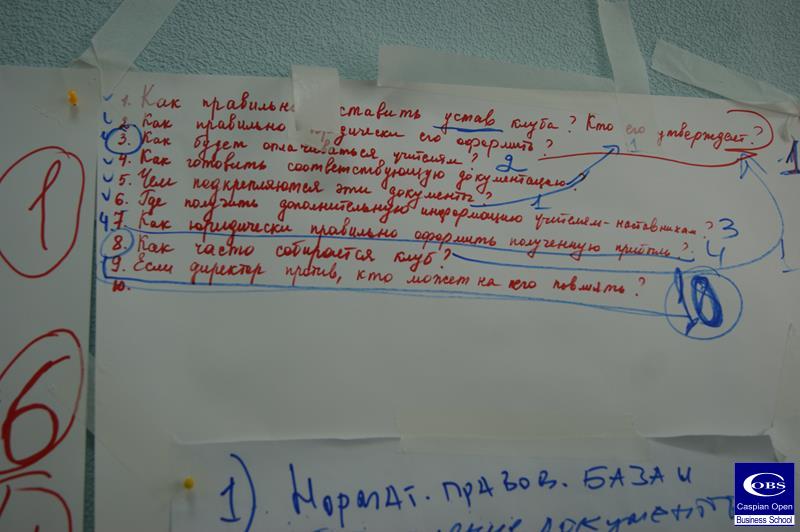 1. Как правильно ставить устав клуба? Кто его утверждает?
2. Как правильно дически его оформить?
3. Как будет оплачиваться учителям?
4. Как готовить соответствующую документацию?
5. Чем подкрепляются эти документы?
6. Где получить дополнительную информацию учителям-наставникам?
7. Как юридически правильно оформить полученную прибыль?
8. Как часто собирается клуб?
9. Если директор против, кто может на него повлиять?
10.
1
2
1
3
4
1
1
10
1
6
1). Нормат. правов. база и
документ
OBS
Caspian Open
Business School